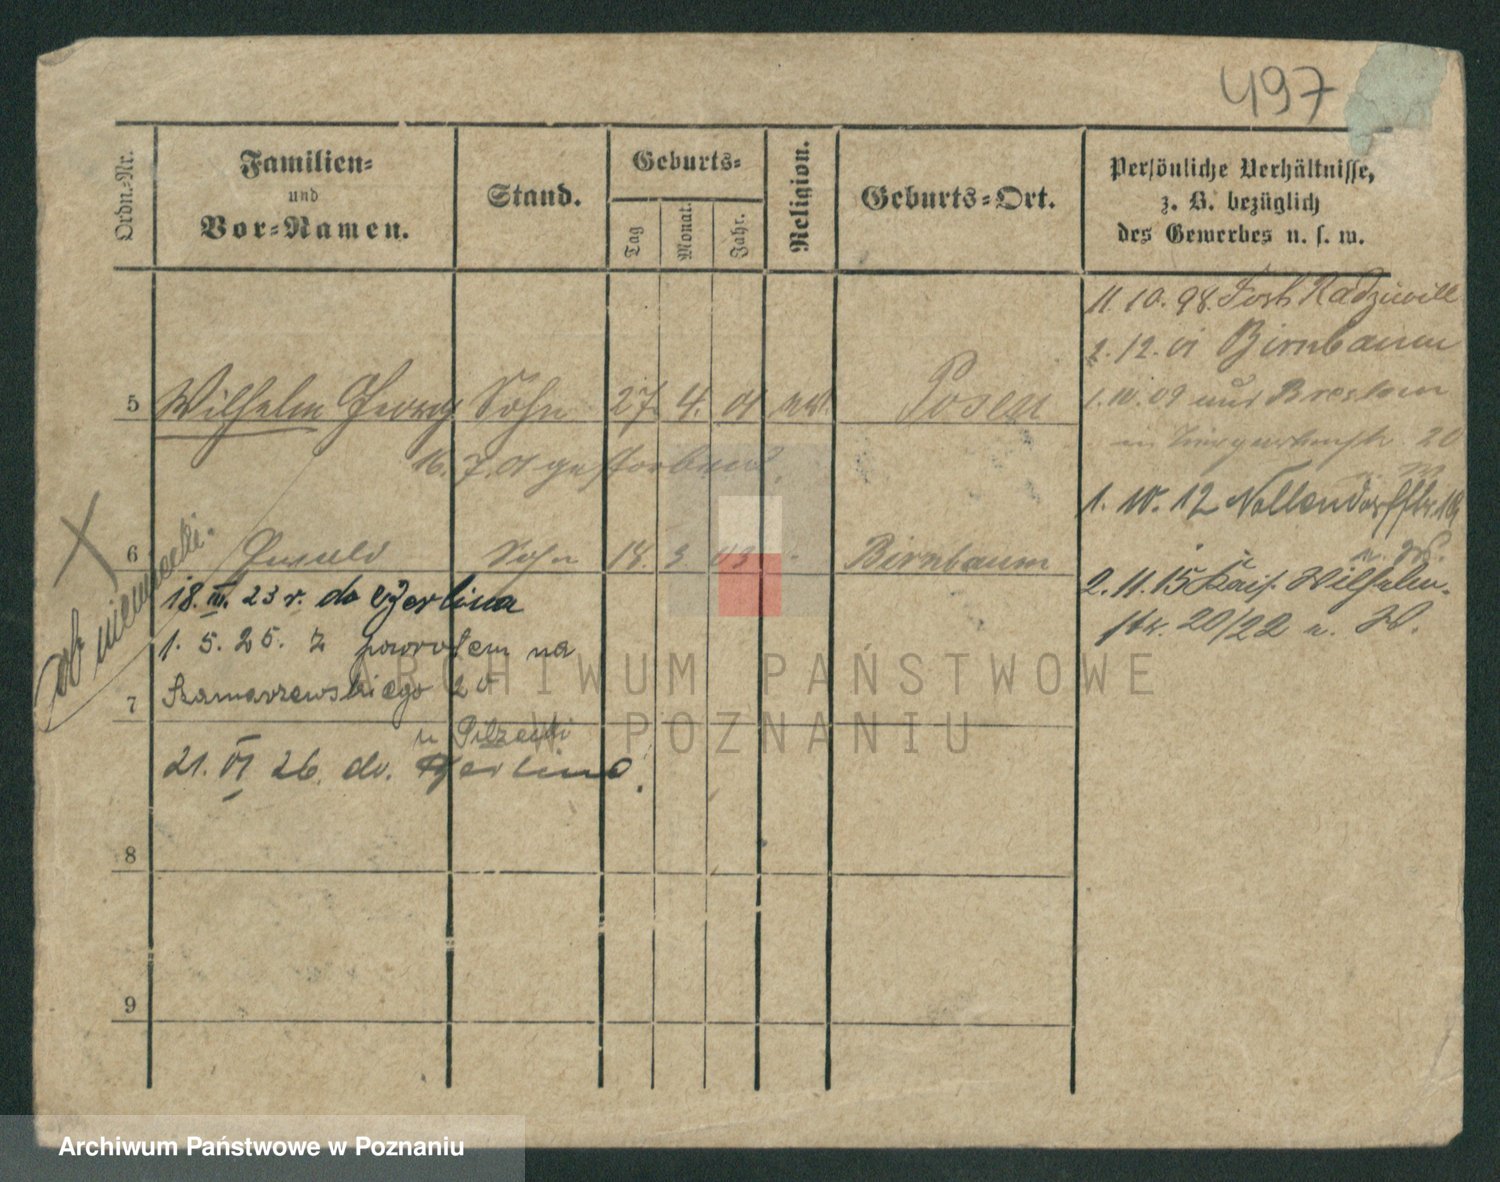 497
Ordn.-Nr.
Familien-
und
Vor-Namen.
Stand.
Geburts-
Tag
Monat.
Jahr.
Religion.
Geburts-Ort.
Persönliche Verhältnisse,
z. B. bezüglich
des Gewerbes u. s. w.
11. 10. 98. Fort Radziwill
2. 12. 01 Birnbaum
5 Wilhelm Georg Sohn 27 4. 01 Posen
1. 10. 09 aus Breslau
20
16. 7. 01 gestorben.
1. 10. 12 Nollendorfstr. 19
6 Sohn 18. 3 03 - Birnbaum
2. 11. 15 Kais. Wilhelm-
str. 20/22 u. W.
ob. niemiecki.
18. IV. 23 r. do Berlina
1. 5. 25. z powrotem na
7 Szamarzewskiego 20
u
21. VI 26. do. Berlina.
8
9
ARCHIWUM PAŃSTWOWE
W POZNANIU
Archiwum Państwowe w Poznaniu